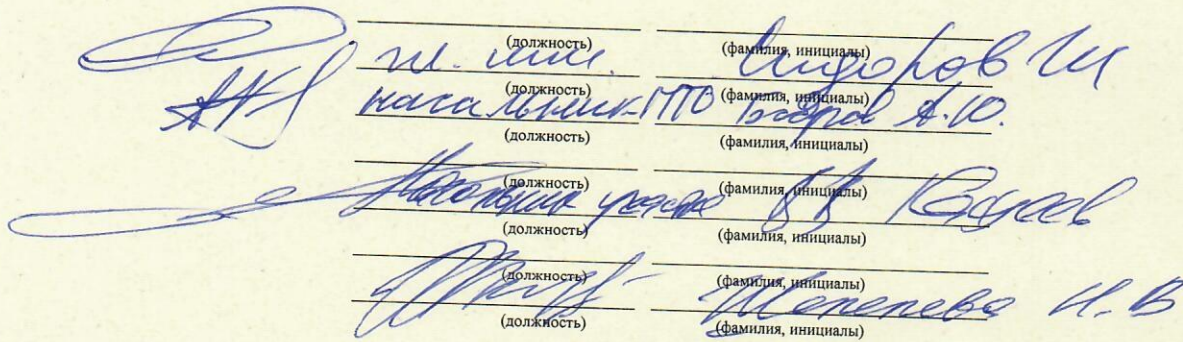 (должность) (фамилия, инициалы)
гл. инж. Сидоров
(должность) (фамилия, инициалы)
начальник ПТО А.Ю.
(должность) (фамилия, инициалы)
(должность) (фамилия, инициалы)
Начальник участка
(должность) (фамилия, инициалы)
(должность) (фамилия, инициалы)
Шепелева И.В
(должность) (фамилия, инициалы)